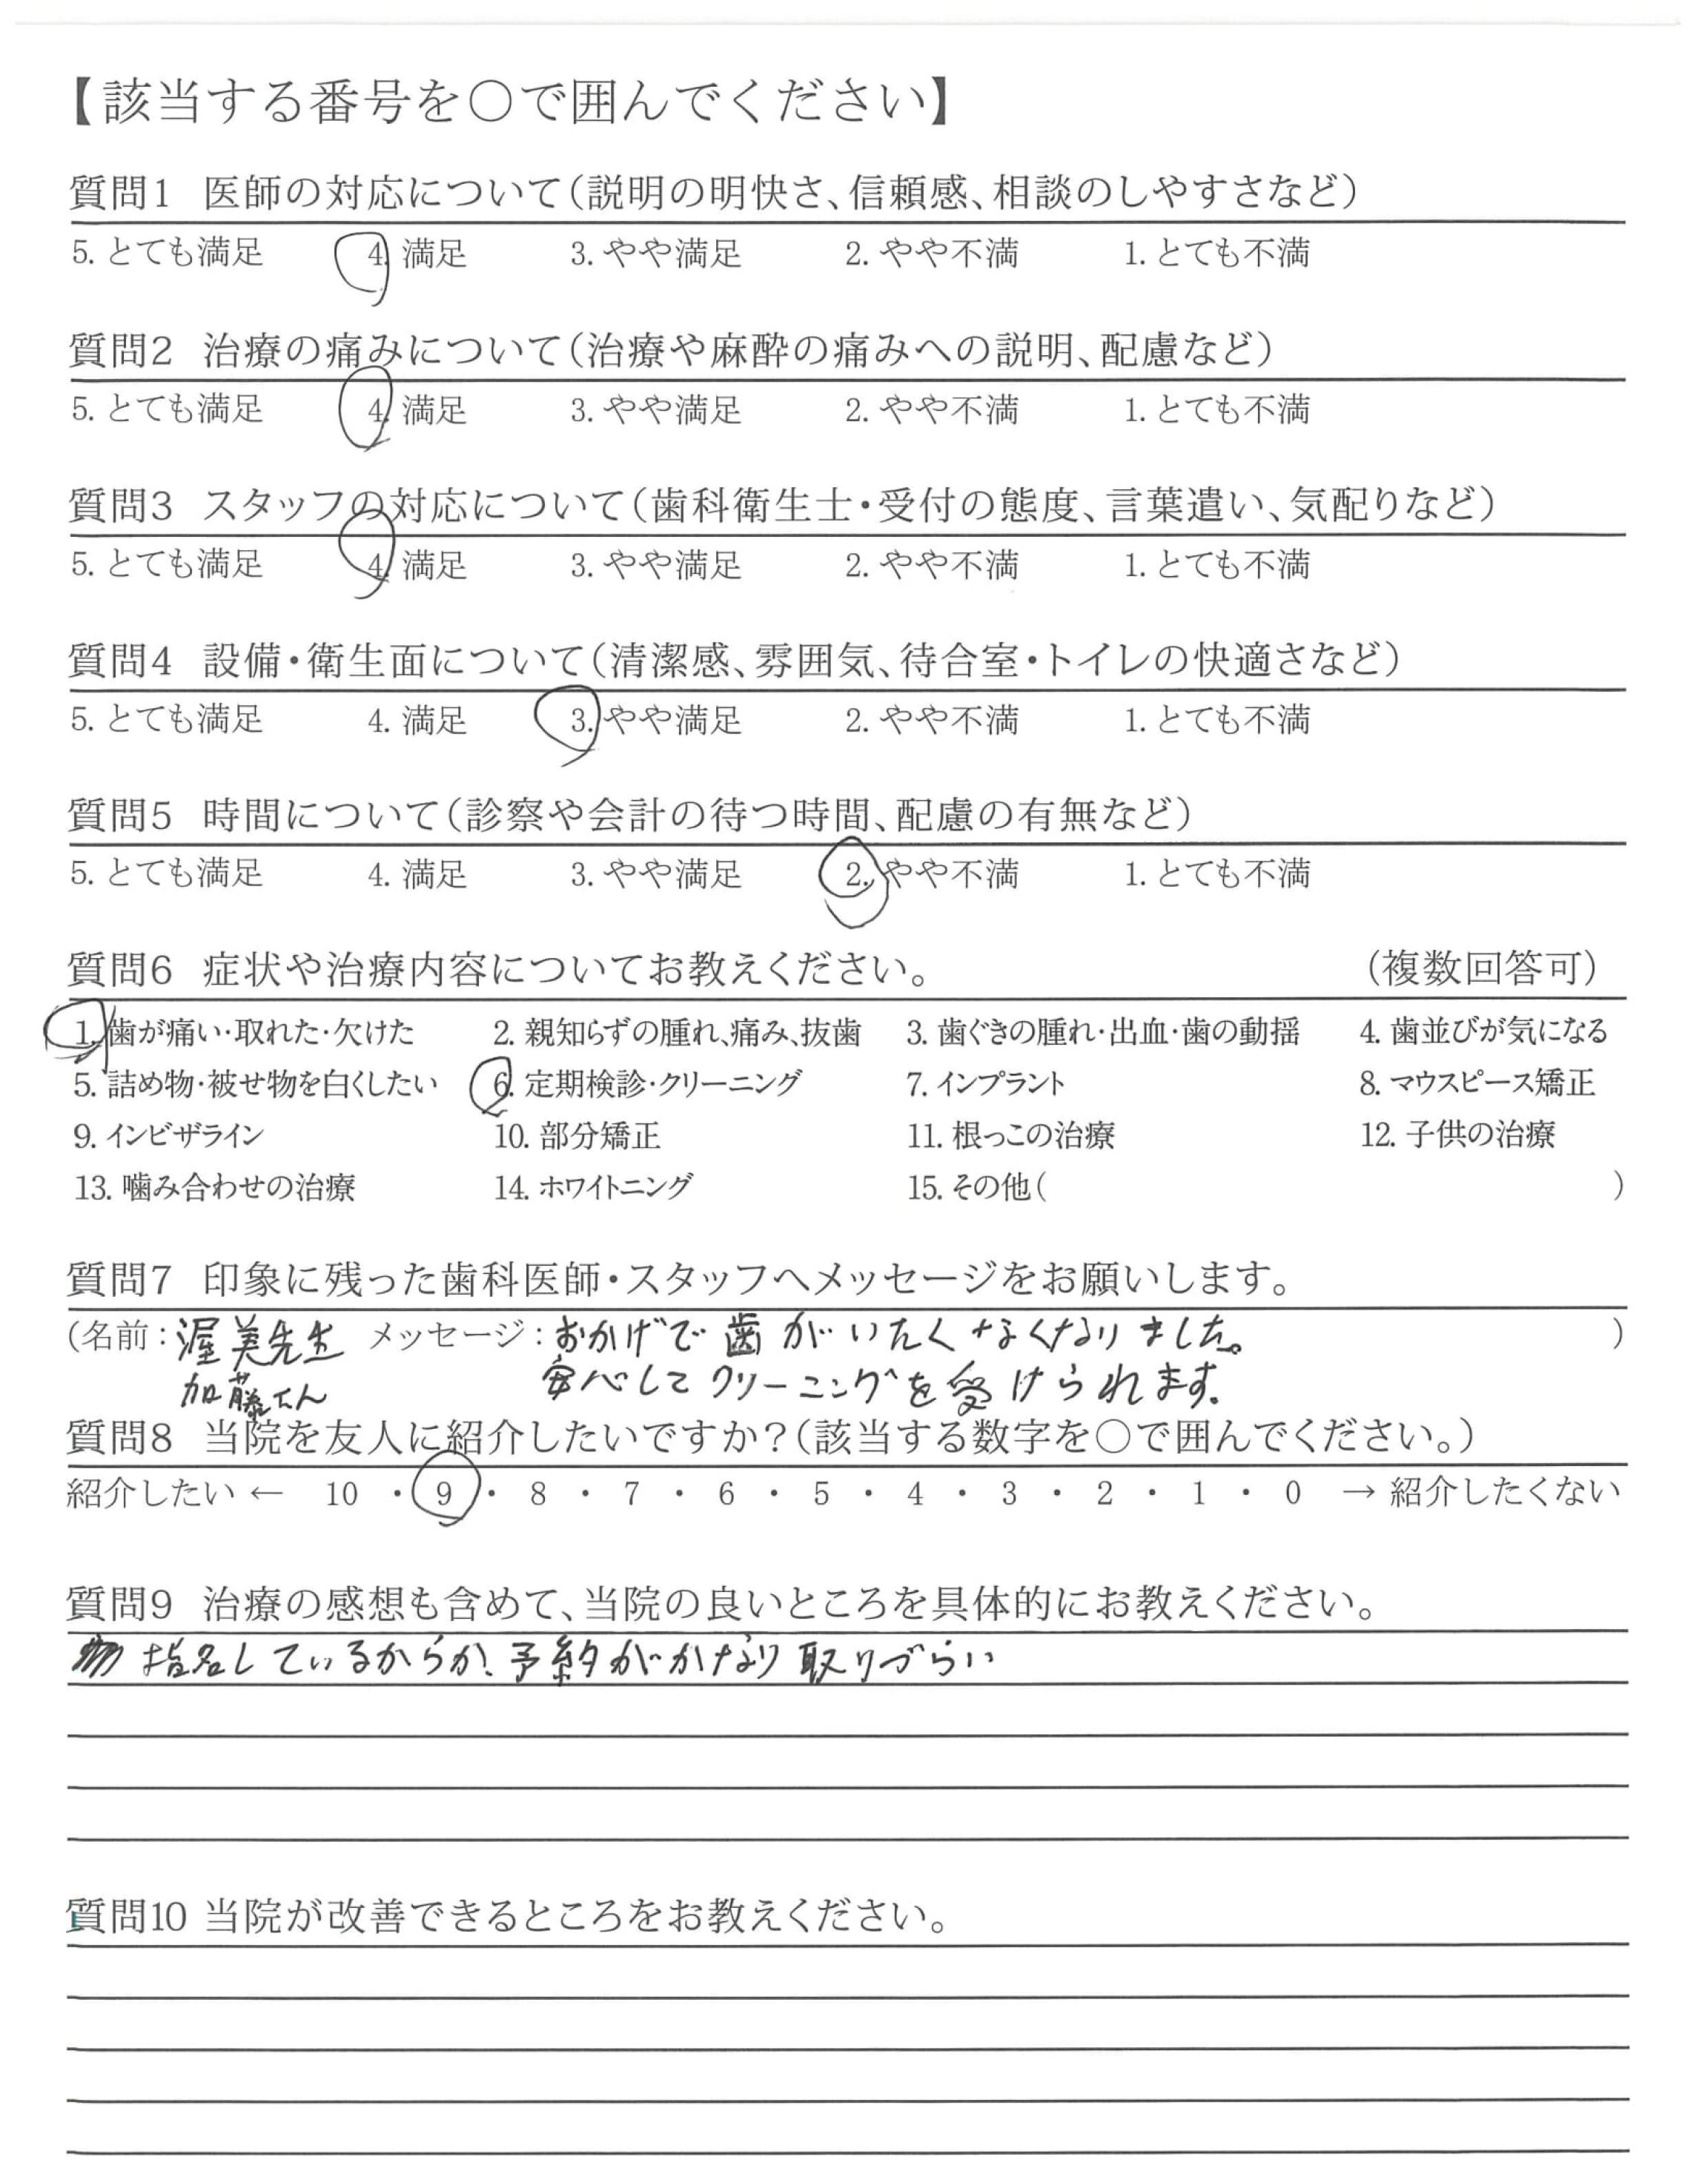 【該当する番号を○で囲んでください】
質問1 医師の対応について(説明の明快さ、信頼感、相談のしやすさなど)
5. とても満足 4. 満足 3. やや満足 2. やや不満 1. とても不満
質問2 治療の痛みについて(治療や麻酔の痛みへの説明、配慮など)
5. とても満足 4. 満足 3. やや満足 2. やや不満 1. とても不満
質問3 スタッフの対応について(歯科衛生士・受付の態度、言葉遣い、気配りなど)
5. とても満足 4. 満足 3. やや満足 2. やや不満 1. とても不満
質問4 設備・衛生面について(清潔感、雰囲気、待合室・トイレの快適さなど)
5. とても満足 4. 満足 3. やや満足 2. やや不満 1. とても不満
質問5 時間について(診察や会計の待つ時間、配慮の有無など)
5. とても満足 4. 満足 3. やや満足 2. やや不満 1. とても不満
質問6 症状や治療内容についてお教えください。 (複数回答可)
1. 歯が痛い・取れた・欠けた 2. 親知らずの腫れ、痛み、抜歯 3. 歯ぐきの腫れ・出血・歯の動揺 4. 歯並びが気になる
5. 詰め物・被せ物を白くしたい 6. 定期検診・クリーニング 7. インプラント 8. マウスピース矯正
9. インビザライン 10. 部分矯正 11. 根っこの治療 12. 子供の治療
13. 噛み合わせの治療 14. ホワイトニング 15. その他( )
質問7 印象に残った歯科医師・スタッフへメッセージをお願いします。
(名前：渥美先生 メッセージ：おかげで歯がいたくなくなりました。 )
加藤さん 安心してクリーニングを受けられます。
質問8 当院を友人に紹介したいですか？(該当する数字を○で囲んでください。)
紹介したい ← 10 ・ 9 ・ 8 ・ 7 ・ 6 ・ 5 ・ 4 ・ 3 ・ 2 ・ 1 ・ 0 → 紹介したくない
質問9 治療の感想も含めて、当院の良いところを具体的にお教えください。
指名しているからか、予約がかなり取りづらい
質問10 当院が改善できるところをお教えください。